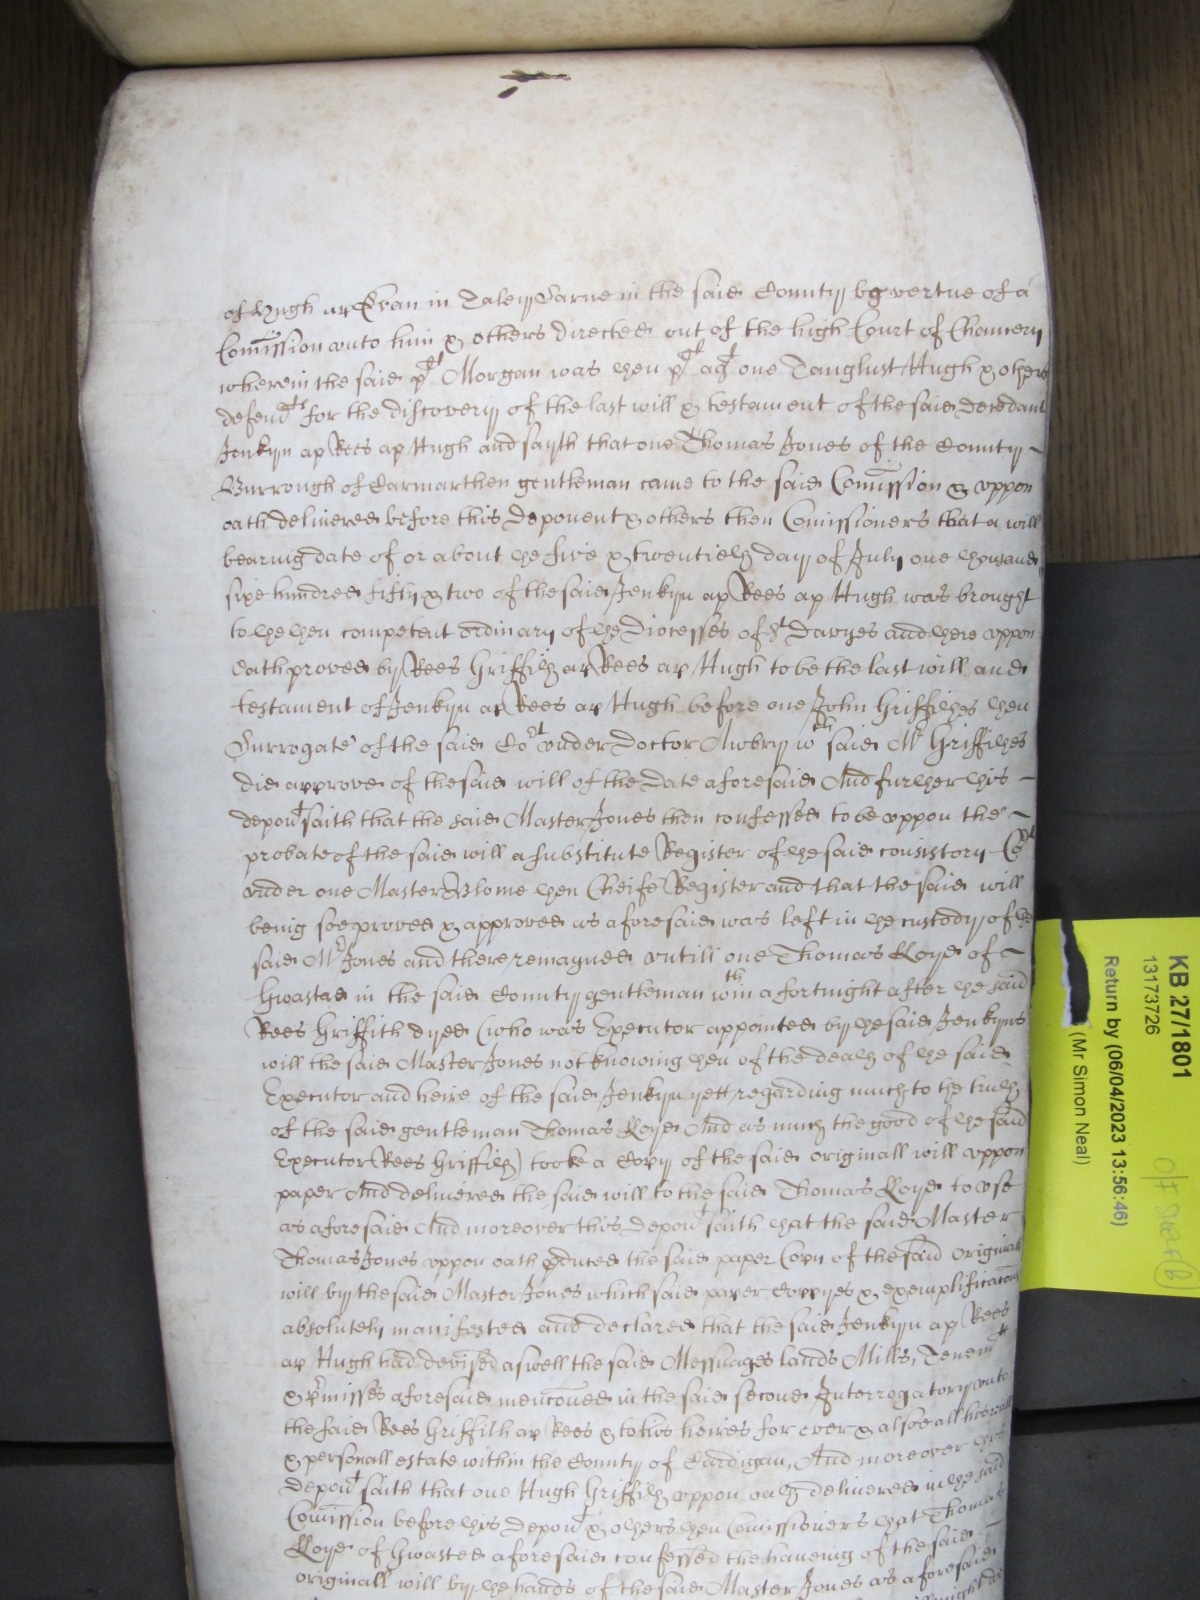 of Hugh ap Evan in Taley Sarne in the said County by vertue of a
Comission unto him & others directed out of the high Court of Chancery
wherein the said plt Morgan was then plt agt one Tanglust Hugh & others
defendts for the discovery of the last will & testament of the said decedant
Jenkyn ap Rees ap Hugh and sayth that one Thomas Jones of the County
Burrough of Carmarthen gentleman came to the said Comission & uppon
oath delivered before this deponent & others then Comissioners that a will
bearing date of or about the five & twentieth day of July one thousand
sixe hundred fifty & two of the said Jenkyn ap Rees ap Hugh was brought
to the then competent ordinary of the Diocesses of St Davyes and there uppon
Oath proved by Rees Griffith ap Rees ap Hugh to be the last will and
testament of Jenkyn ap Rees ap Hugh before one John Griffithes then
Surrogate of the said Cort under Doctor Awbry wch said Mr Griffithes
did approve of the said will of the date aforesaid And further this
depont saith that the said Master Jones then confessed to be uppon the
probate of the said will a substitute Register of the said consistory Cort
under one Master Blome then Cheife Register and that the said will
being soe proved & approved as aforesaid was left in the custody of the
said Mr Jones and there remayned untill one Thomas Lloyd of
Gwastad in the said County gentleman wthin a fortnight after the said
Rees Griffith dyed (who was Executor appointed by the said Jenkyns
will the said Master Jones not knowing then of the death of the said
Executor and heire of the said Jenkyn yett regarding much to the truth
of the said gentleman Thomas Lloyd And as much the good of the said
Executor Rees Griffith) tooke a Copy of the said originall will uppon
paper And delivered the said will to the said Thomas Lloyd to use
as aforesaid And moreover this depont saith that the said Master
Thomas Jones uppon oath pduced the said paper Copy of the said originall
will by the said Master Jones which said paper Coppyes & exemplificacons
absolutely manifested and declared that the said Jenkyn ap Rees
ap Hugh had devised aswell the said Messuages lands Mills, Tenemts
& pmisses aforesaid mencioned in the said second Interrogatory unto
the said Rees Griffith ap Rees & to his heires for ever & alsoe all his reall
& personall estate within the County of Cardigan, And moreover this
depont saith that one Hugh Griffith uppon oath delivered in the said
Comission before this depont & others then Comissioners that Thomas
Lloyd of Gwasted aforesaid confessed the haveing of the said
originall will by the hands of the said Master Jones as aforesaid
KB 27/1801
13173726
Return by (06/04/2023 13:56:46)
(Mr Simon Neal)